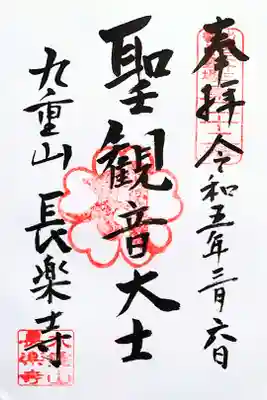 奉拝 令和五年三月六日
聖観音大士
九重山 長楽寺